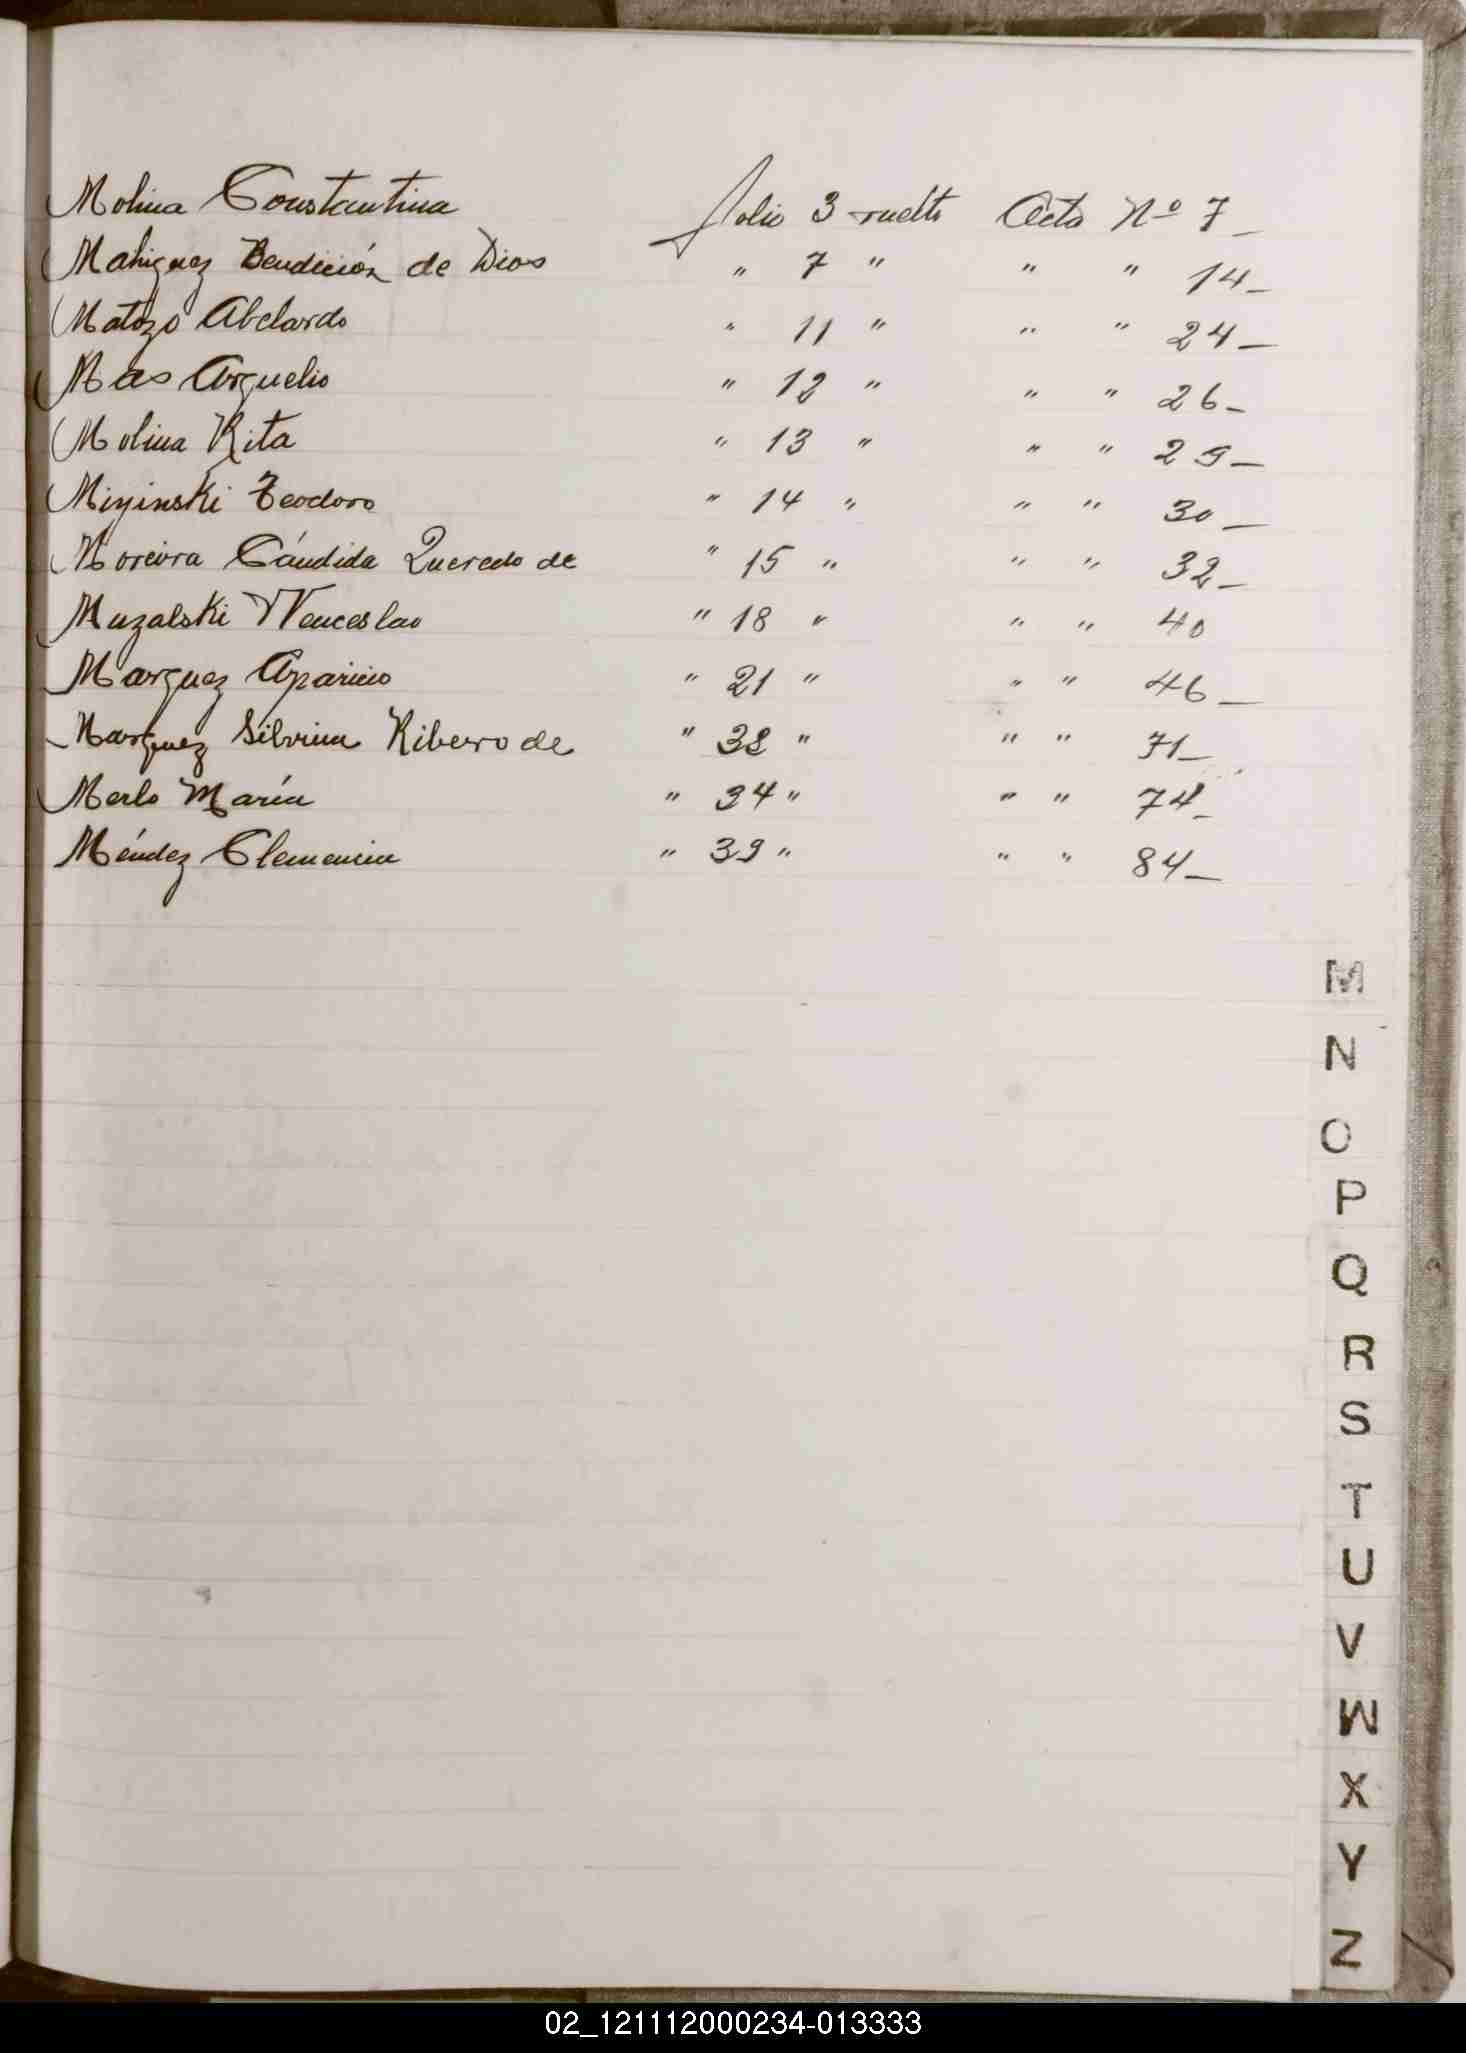 Molina Constantina folio 3 vuelto Acta Nº 7_
Mahiguez Bendición de Dios " 7 " " " 14_
Matozo Abelardo " 11 " " " 24_
Mas Arguelio " 12 " " " 26_
Molina Rita " 13 " " " 29_
Miyinski Teodoro " 14 " " " 30_
Moreira Cándida Quevedo de " 15 " " " 32_
Muzalski Wenceslao " 18 " " " 40
Marquez Aparicio " 21 " " " 46_
Marquez Silvina Ribero de " " " " 71_
Merlo María " 34 " " " 74_
Méndez Clemencia " 39 " " " 84_
M
N
O
P
Q
R
S
T
U
V
W
X
Y
Z
02_121112000234-013333